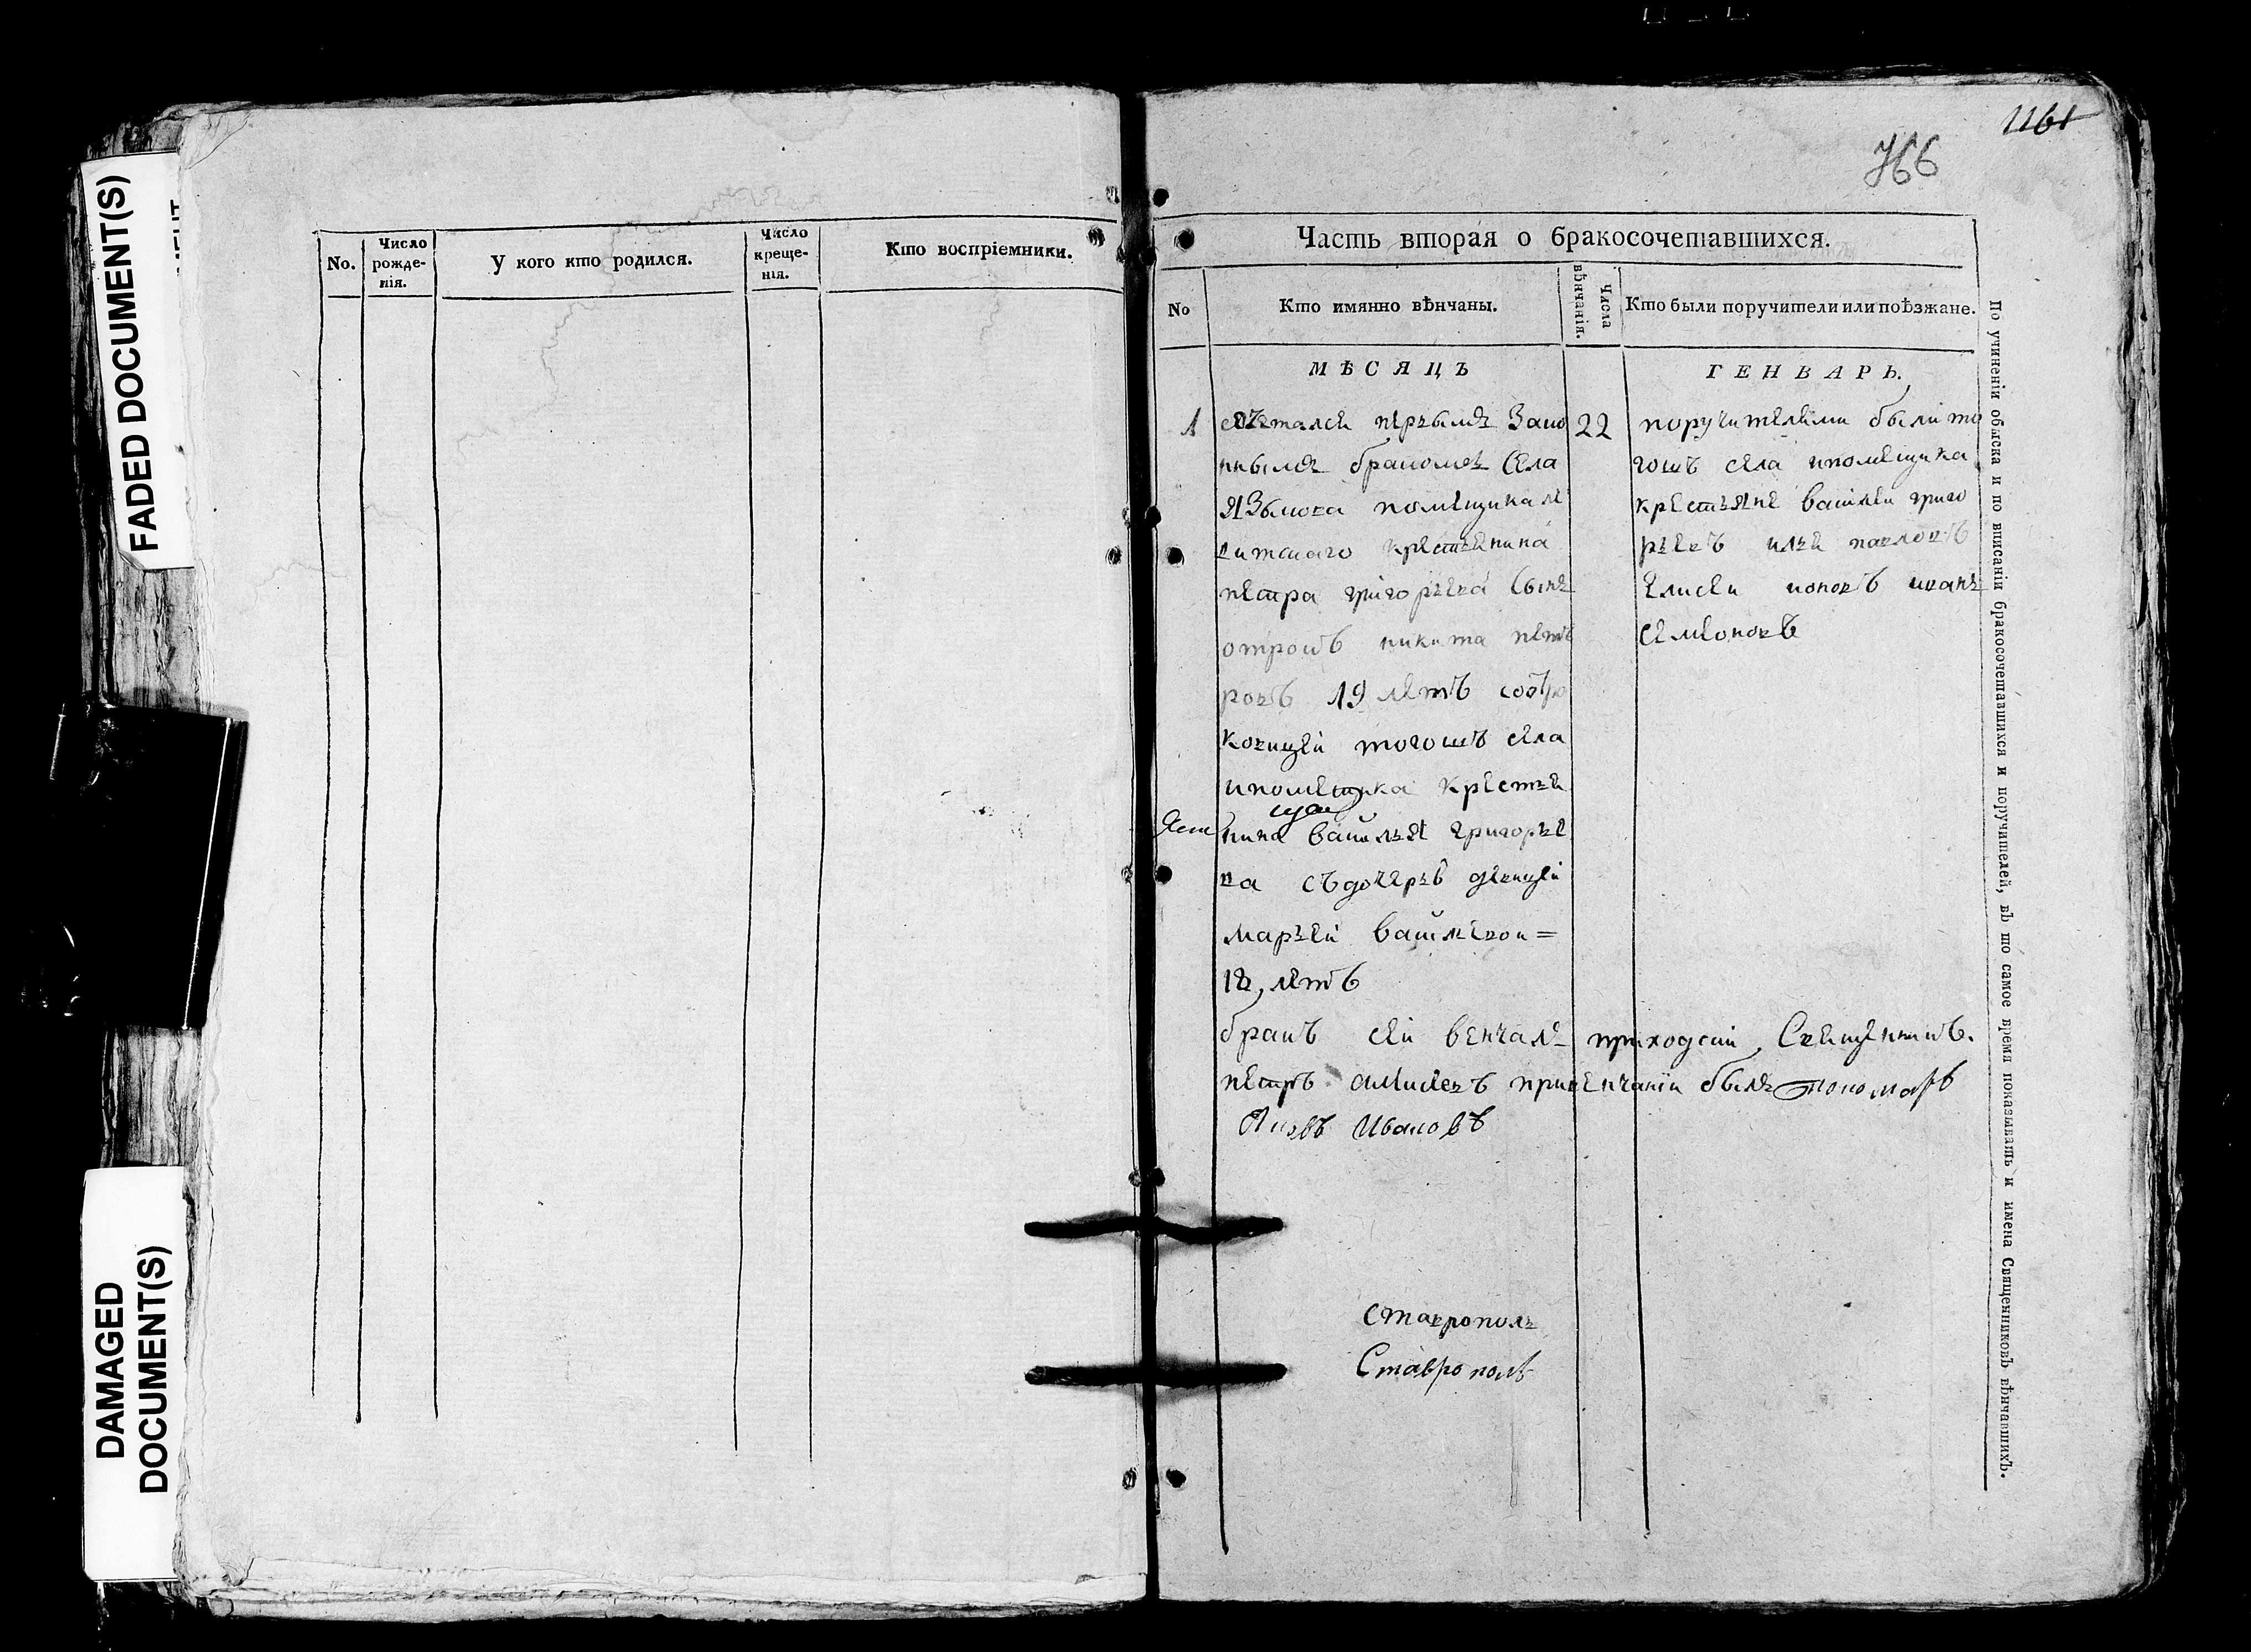 FADED DOCUMENT(S)
DAMAGED
DOCUMENT(S)
No.
Число
рожде-
нія.
У кого кто родился.
Число
креще-
нія.
Кто воспріемники.
1161
766
Часть вторая о бракосочетавшихся.
No
Кто имянно вѣнчаны.
Числа
вѣнчанія.
Кто были поручители или поѣзжане.
МѢСЯЦЪ
ГЕНВАРЬ.
1
первымъ Зако
ннымъ бракомъ Села
Языкова помещика
крестьенина
петра григорьева Сынъ
отрокъ никита пет
ровъ 19 летъ
тогошъ села
ипомещика крестьи
нина василья григорье
ва съдочерью девицеи
марьеи васильевои =
18, летъ
22
поручителими были то
гошъ села ипомещика
крестьяне василеи григо
рьевъ павловъ
Елисеи иванъ
семионовъ
бракъ сеи венчалъ приходски Свещенникъ.
петръ алисеевъ привенчании былъ пономарь
Яковъ Ивановъ
ставрополь
Ставрополь
По учиненіи обыска и по вписаніи бракосочетавшихся и поручителей, въ то самое время показывать и имена Священниковъ вѣнчавшихъ.